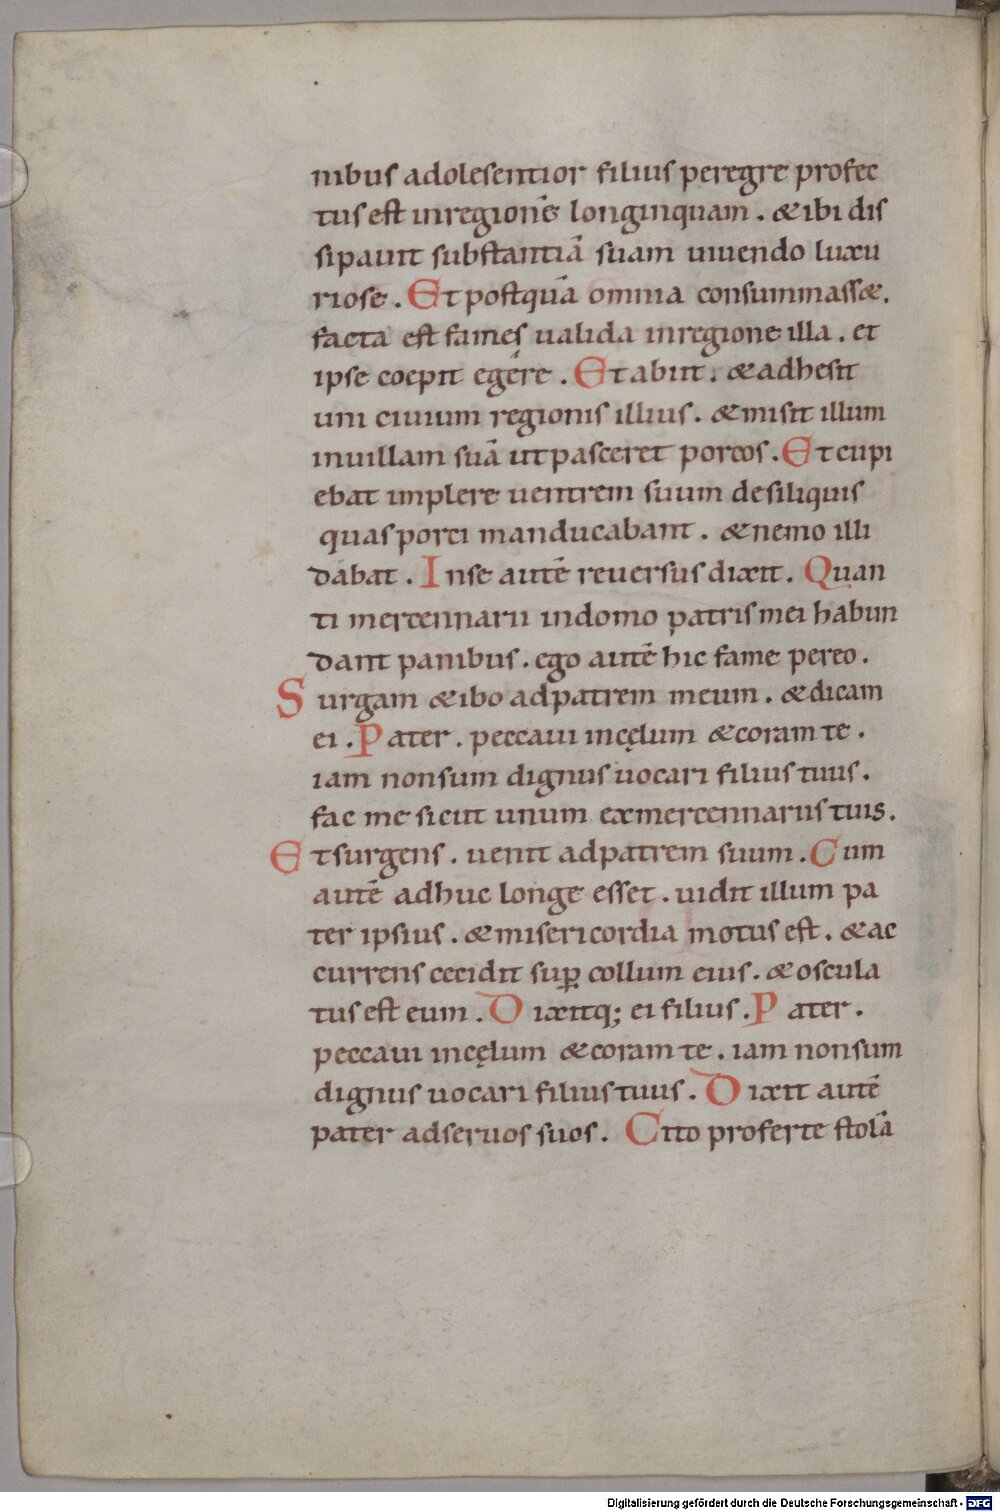 nibus adolesentior filius peregre profec
tus est inregionē longinquam . & ibi dis
sipauit substantiā suam uiuendo luxu
riose . Et postquā omnia consummass&.
facta est fames ualida inregione illa . et
ipse coepit egere . Et abiit . & adhesit
uni ciuium regionis illius . & misit illum
inuillam suā ut pasceret porcos . Et cupi
ebat implere uentrem suum desiliquis
quas porci manducabant . & nemo illi
dabat . Inse autē reuersus dixit . Quan
ti mercennarii indomo patris mei habun
dant panibus . ego autē hic fame pereo .
Surgam & ibo adpatrem meum . & dicam
ei . Pater . peccaui incęlum & coram te .
iam nonsum dignus uocari filius tuus .
fac me sicut unum exmercennariis tuis .
Et surgens . uenit adpatrem suum . Cum
autē adhuc longe esset . uidit illum pa
ter ipsius . & misericordia motus est . & ac
currens cecidit suꝑ collum eius . & oscula
tus est eum . Dixitq; ei filius . Pater .
peccaui incęlum & coram te . iam nonsum
dignus uocari filius tuus . Dixit autē
pater adseruos suos . Cito proferte stolā
Digitalisierung gefördert durch die Deutsche Forschungsgemeinschaft - DFG